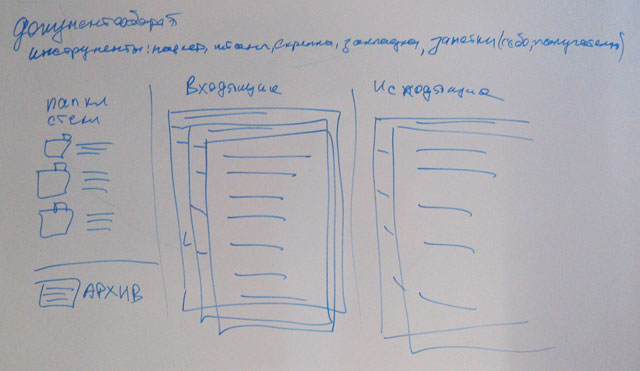 Документооборот
инструменты: пакет, штамп, скрепка, закладка, заметки (себе, получателю)
Входящие
Исходящие
папки
стеки
АРХИВ